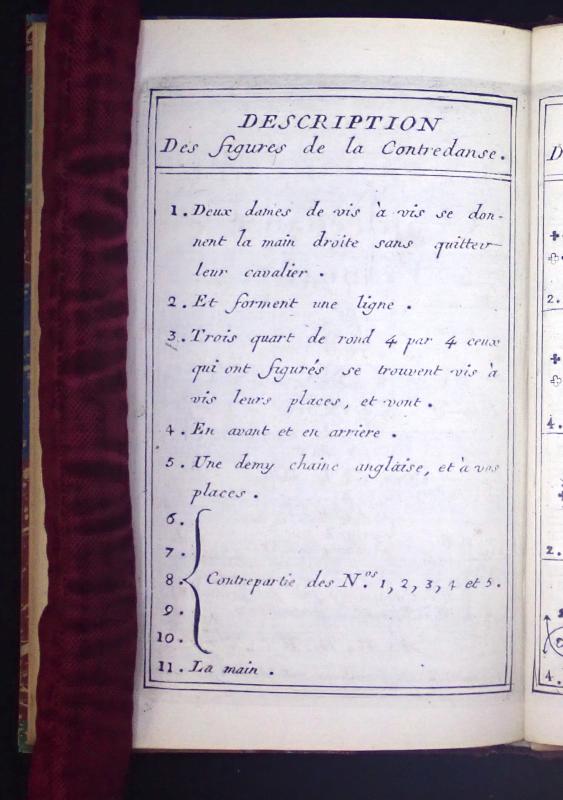 DESCRIPTION
Des figures de la Contredanse.
1. Deux dames de vis à vis se don-
nent la main droite sans quitter
leur cavalier.
2. Et forment une ligne.
3. Trois quart de rond 4 par 4 ceux
qui ont figurés se trouvent vis à
vis leurs places, et vont.
4. En avant et en arriere.
5. Une demy chaine anglaise, et à vos
places.
6.
7.
8. Contrepartie des N.os 1, 2, 3, 4 et 5.
9.
10.
11. La main.
D
2.
4.
2.
4.